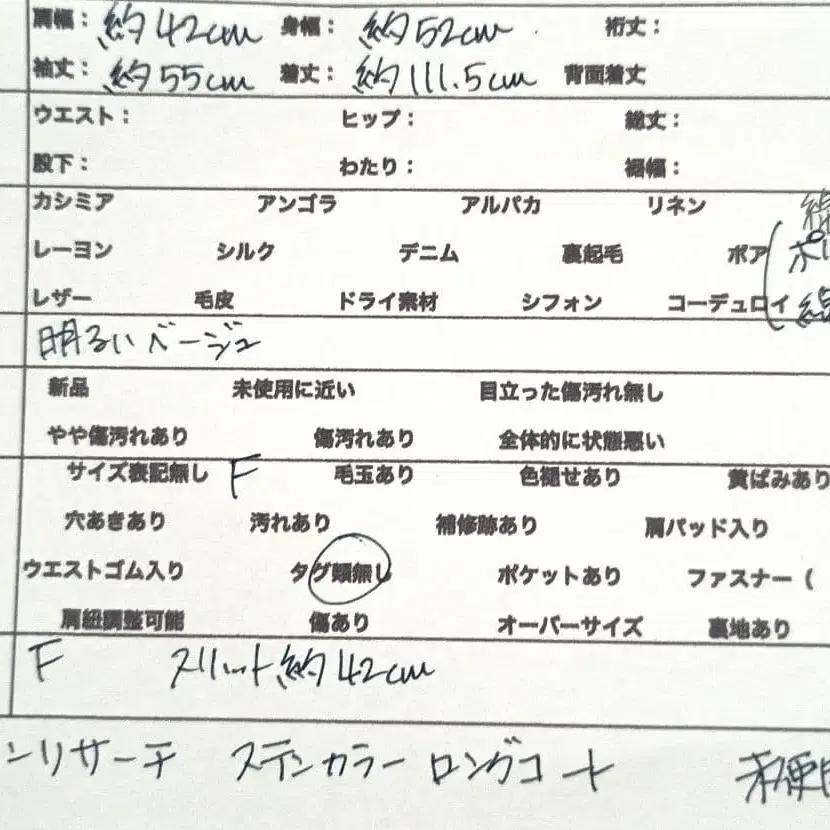 肩幅： 約42cm 身幅： 約52cm 裄丈：
袖丈： 約55cm 着丈： 約111.5cm 背面着丈
ウエスト： ヒップ： 総丈：
股下： わたり： 裾幅：
カシミア アンゴラ アルパカ リネン
レーヨン シルク デニム 裏起毛 ボア
レザー 毛皮 ドライ素材 シフォン コーデュロイ
明るいベージュ
新品 未使用に近い 目立った傷汚れ無し
やや傷汚れあり 傷汚れあり 全体的に状態悪い
サイズ表記無し F 毛玉あり 色褪せあり 黄ばみあり
穴あきあり 汚れあり 補修跡あり 肩パッド入り
ウエストゴム入り タグ類無し ポケットあり ファスナー（
肩紐調整可能 傷あり オーバーサイズ 裏地あり
F スリット約42cm
ンリサーチ ステンカラー ロングコート 未使用